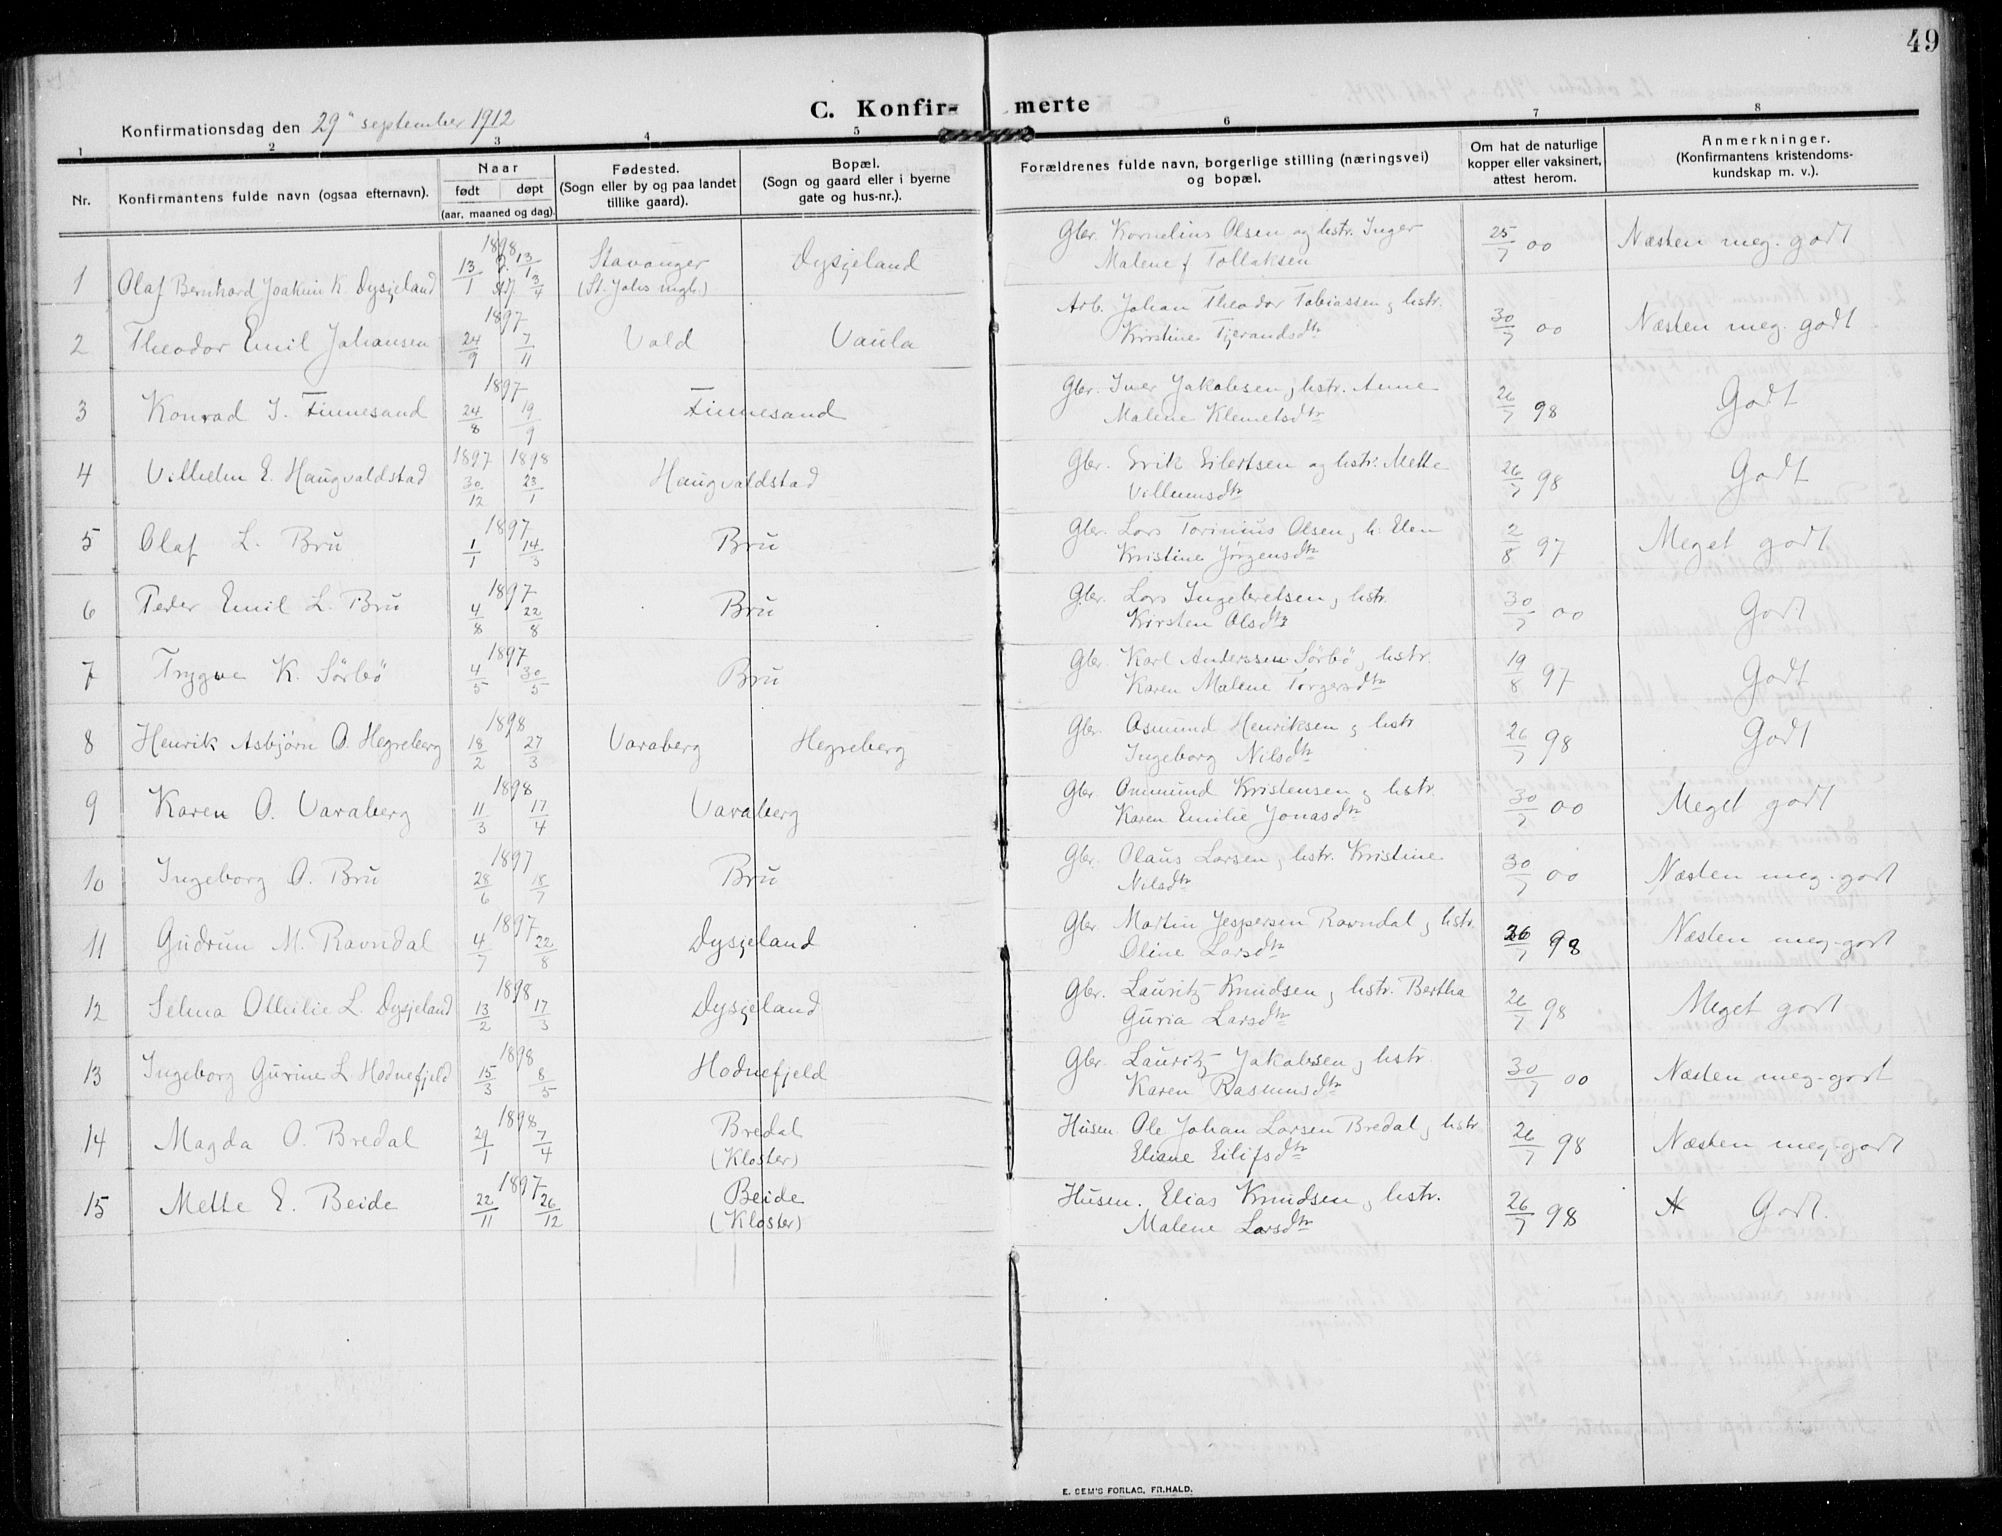 49
C. Konfir- merte
Konfirmationsdag den 29" september 1912
1 2 3 4 5 6 7 8
Nr.
Konfirmantens fulde navn (ogsaa efternavn).
Naar
født døpt
(aar, maaned og dag).
Fødested.
(Sogn eller by og paa landet
tillike gaard).
Bopæl.
(Sogn og gaard eller i byerne
gate og hus-nr.).
Forældrenes fulde navn, borgerlige stilling (næringsvei)
og bopæl.
Om hat de naturlige
kopper eller vaksinert,
attest herom.
Anmerkninger.
(Konfirmantens kristendoms-
kundskap m. v.).
1 Olaf Bernhard Joakim K. Dysjeland 1898 13/1 13/1 3/4 Stavanger Dysjeland Gbr. Kornelius Olsen og hstr. Inger 25/7 00 Næsten meg. godt
Malene f Tollaksen
2 Theodor Emil Johansen 1897 24/9 7/11 Vald Vaula Arb. Johan Theodor Tobiassen, hstr. 30/7 00 Næsten meg. godt
Kristine Tjerandsdtr
3 Konrad I. Finnesand 1897 24/8 19/9 Finnesand Gbr. Iver Jakobsen, hstr. Anne 26/7 98 Godt
Malene Klemetsdtr
4 Vilhelm E. Haugvaldstad 1897 1898 30/12 23/1 Haugvaldstad Gbr. Erik Eilertsen og hstr. Mette 26/7 98 Godt
Villumsdtr
5 Olaf L. Bru 1897 1/1 14/3 Bru Gbr. Lars Torinius Olsen, h. Elen 2/8 97 Meget godt
Kristine Jørgensdtr
6 Peder Emil L. Bru 1897 4/8 22/8 Bru Gbr. Lars Ingebretsen, hstr. 30/7 00 Godt
Kirsten Olsdtr
7 Trygve K. Sörbö 1897 4/5 30/5 Bru Gbr. Karl Anderssen Sörbö, hstr. 19/8 97 Godt
Karen Malene Torgersdtr
8 Henrik Asbjørn O. Hegreberg 1898 18/2 27/3 Varaberg Hegreberg Gbr. Osmund Henriksen, hstr 26/7 98 Godt
Ingeborg Nilsdtr
9 Karen O. Varaberg 1898 11/3 17/4 Varaberg Gbr Ommund Kristensen, hstr. 30/7 00 Meget godt
Karen Emilie Jonasdtr
10 Ingeborg O. Bru 1897 28/6 18/7 Bru Gbr. Olaus Larsen, hstr. Kristine 30/7 00 Næsten meg. godt
Nilsdtr
11 Gudrun M. Ravndal 1897 4/7 22/8 Dysjeland Gbr Martin Jespersen Ravndal, hstr. 26/7 98 Næsten meg. godt
Oline Larsdtr
12 Selma Othilie L. Dysjeland 1898 13/2 17/3 Dysjeland Gbr. Lauritz Knudsen, hstr. Bertha 26/7 98 Meget godt
Guria Larsdtr
13 Ingeborg Gurine L. Hodnefjeld 1898 15/3 8/5 Hodnefjeld Gbr. Lauritz Jakobsen, hstr. 30/7 00 Næsten meg. godt
Karen Rasmusdtr
14 Magda O. Bredal 1898 29/1 7/4 Bredal Husm. Ole Johan Larsen Bredal, hstr 26/7 98 Næsten meg. godt
(Kloster) Eliane Eilifsdtr
15 Mette E. Beide 1897 22/11 26/12 Beide Husm. Elias Knudsen, hstr. 26/7 98 Godt.
(Kloster) Malene Larsdtr
E. SEM'S FORLAG, FR.HALD.